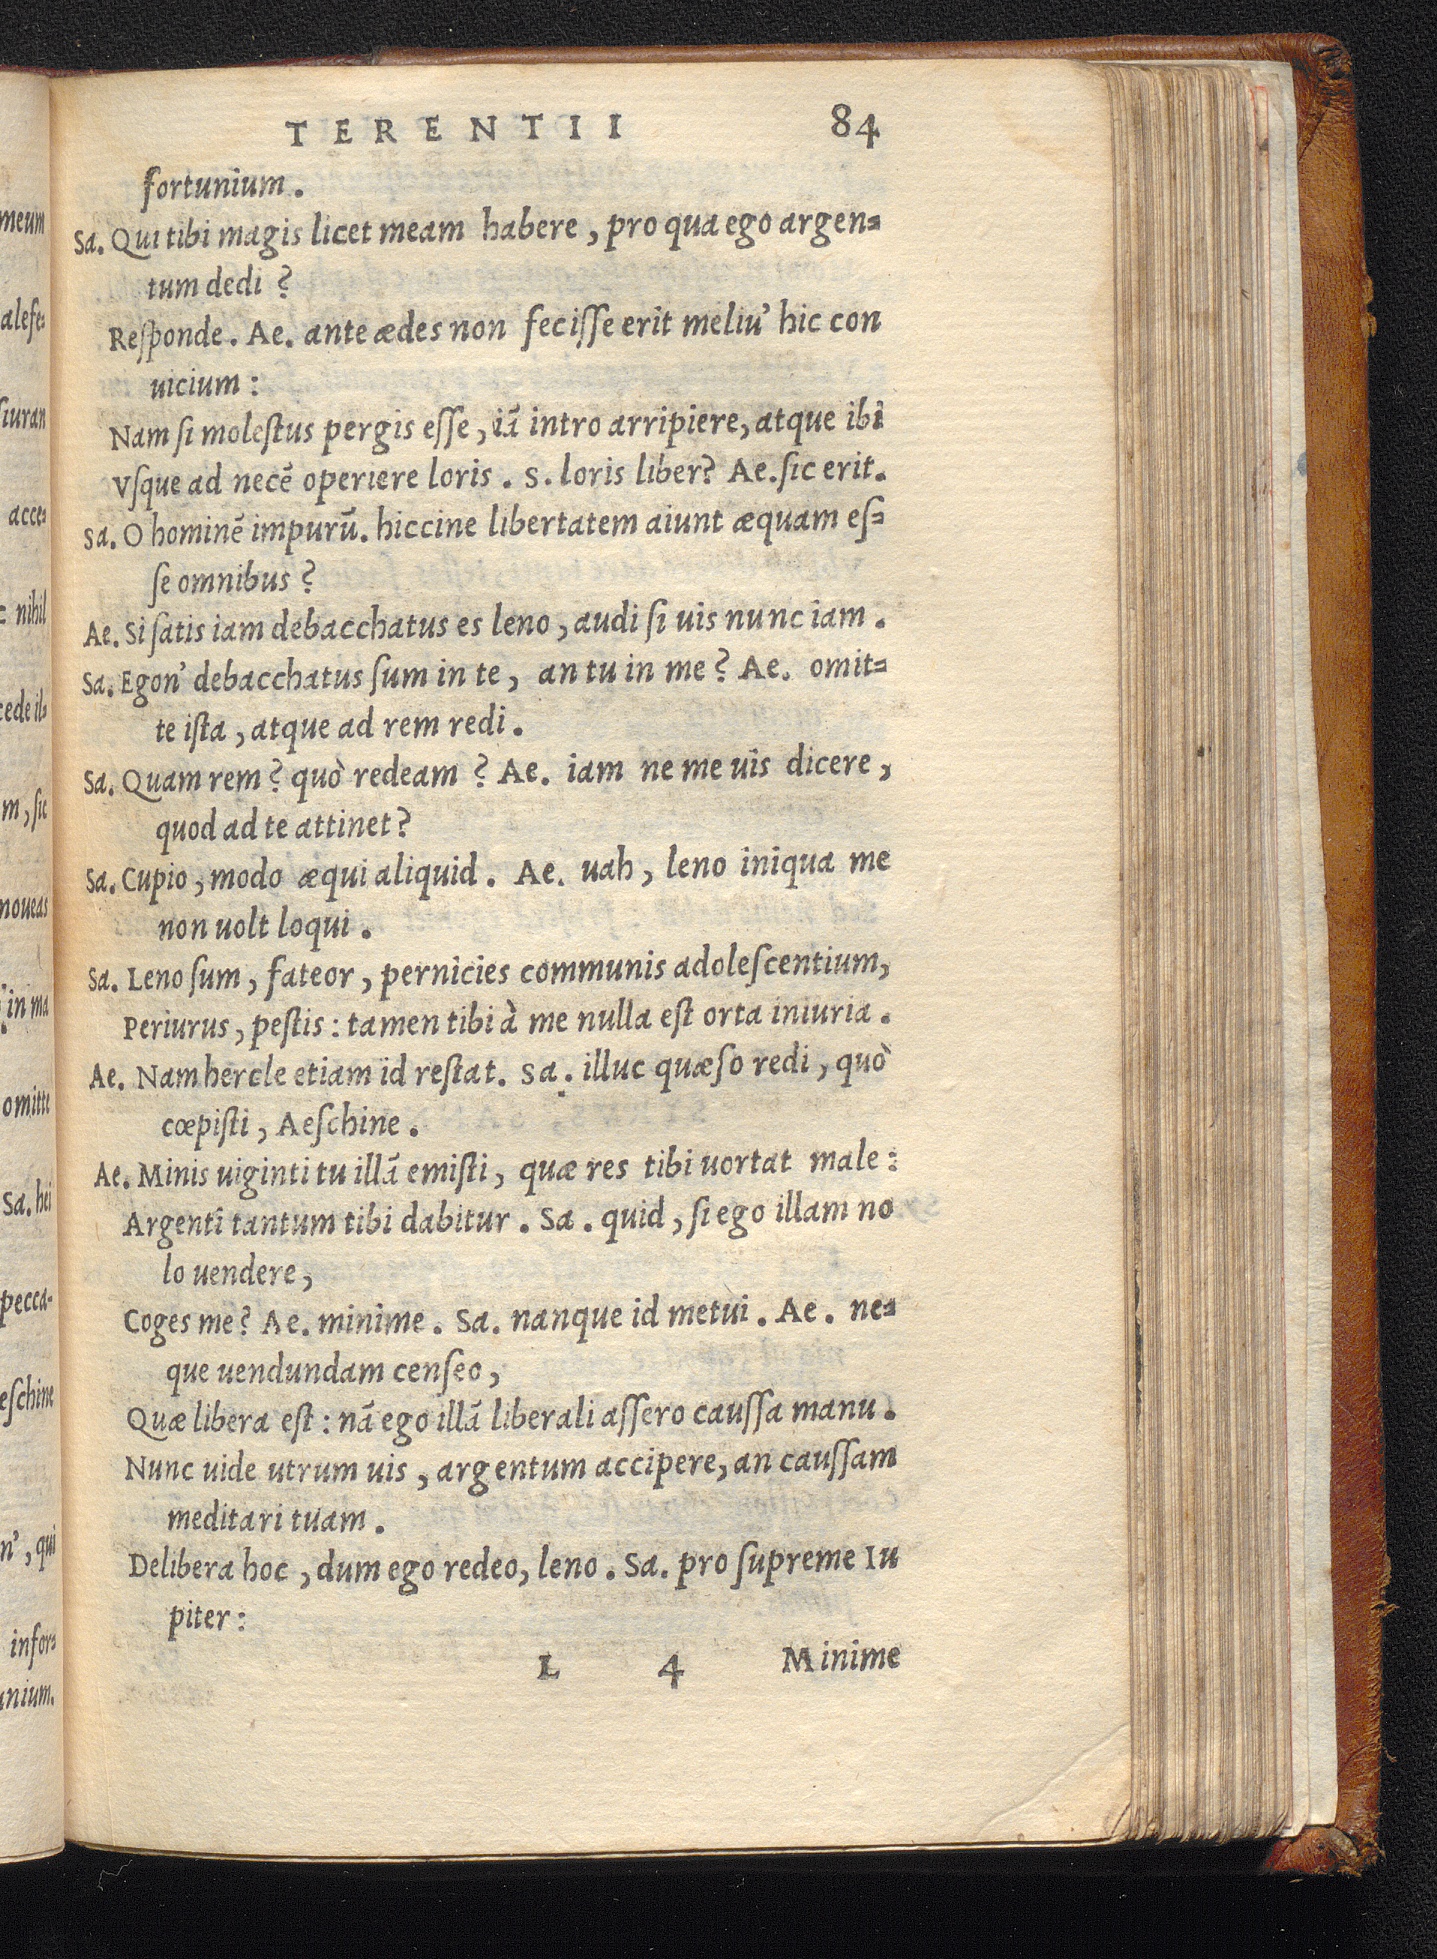 TERENTII 84
fortunium.
Sa. Qui tibi magis licet meam habere, pro qua ego argen=
tum dedi?
Responde. Ae. ante ædes non fecisse erit meliu' hic con
uicium:
Nam si molestus pergis esse, iā intro arripiere, atque ibi
Vsque ad necē operiere loris. S. loris liber? Ae. sic erit.
Sa. O hominē impurū. hiccine libertatem aiunt æquam es=
se omnibus?
Ae. Si satis iam debacchatus es leno, audi si uis nunc iam.
Sa. Egon' debacchatus sum in te, an tu in me? Ae. omit=
te ista, atque ad rem redi.
Sa. Quam rem? quò redeam? Ae. iam ne me uis dicere,
quod ad te attinet?
Sa. Cupio, modo æqui aliquid. Ae. uah, leno iniqua me
non uolt loqui.
Sa. Leno sum, fateor, pernicies communis adolescentium,
Periurus, pestis: tamen tibi à me nulla est orta iniuria.
Ae. Nam hercle etiam id restat. Sa. illuc quæso redi, quò
cœpisti, Aeschine.
Ae. Minis uiginti tu illā emisti, quæ res tibi uortat male:
Argenti tantum tibi dabitur. Sa. quid, si ego illam no
lo uendere,
Coges me? Ae. minime. Sa. nanque id metui. Ae. ne=
que uendundam censeo,
Quæ libera est: nā ego illā liberali assero caussa manu.
Nunc uide utrum uis, argentum accipere, an caussam
meditari tuam.
Delibera hoc, dum ego redeo, leno. Sa. pro supreme Iu
piter:
L 4 Minime
meum
alefe=
siuran
acce=
nihil
cede il=
m, sic
moueas
in ma
omitte
Sa. hei
pecca-
eschine
n', qui
infor=
unium.